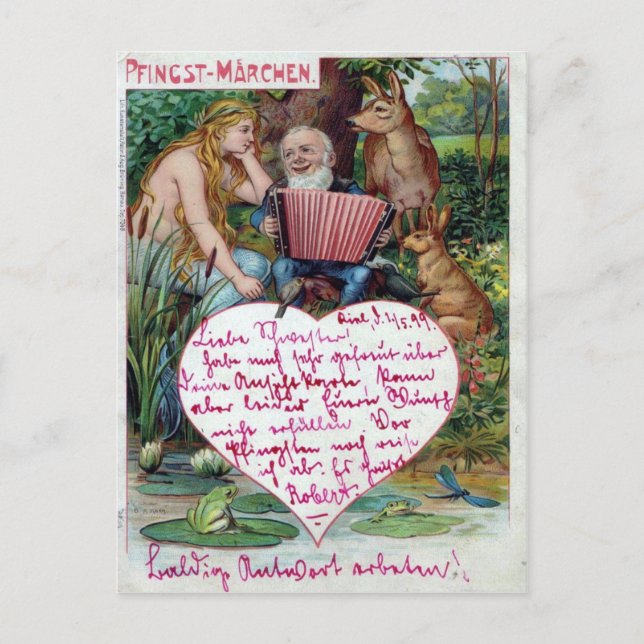 PFINGST-MÄRCHEN.
Kiel, d. 1/5.99.
Liebe Schwester!
habe mich sehr gefreut über
Deine Ansichtkarte, kann
aber leider Euern Wunsch
nicht erfüllen. Vor
Pfingsten noch reise
ich ab. Es grüßt
Robert.
Baldige Antwort erbeten!